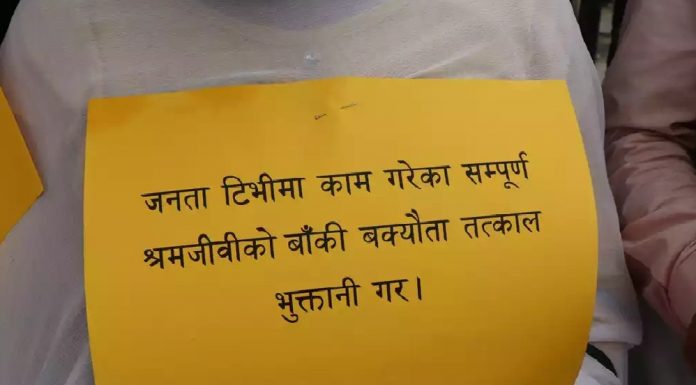 जनता टिभीमा काम गरेका सम्पूर्ण
श्रमजीवीको बाँकी बक्यौता तत्काल
भुक्तानी गर।